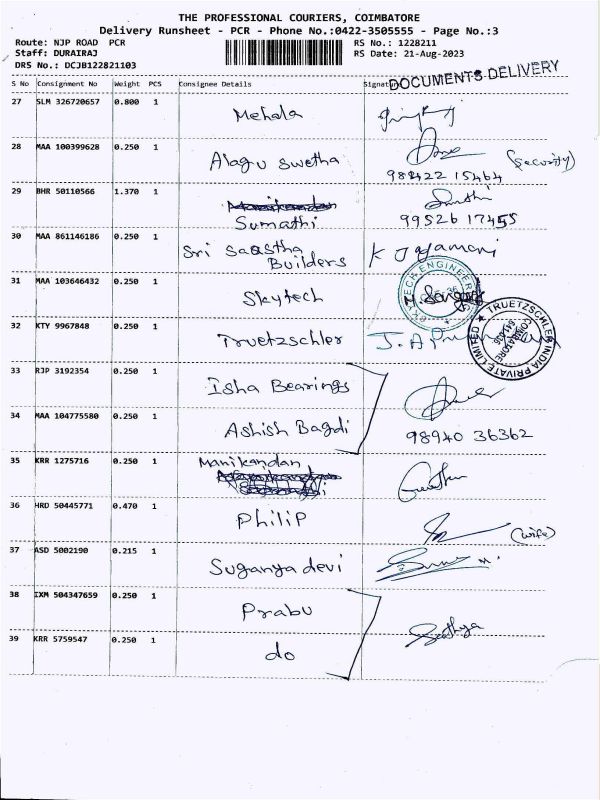 THE PROFESSIONAL COURIERS, COIMBATORE
Delivery Runsheet - PCR - Phone No.:0422-3505555 - Page No.:3
Route: NJP ROAD PCR RS No.: 1228211
Staff: DURAIRAJ RS Date: 21-Aug-2023
DRS No.: DCJB122821103
DOCUMENTS DELIVERY
S No Consignment No Weight PCS Consignee Details
27 SLM 326720657 0.800 1 Mehala
28 MAA 100399628 0.250 1 Alagu swetha (security)
98422 15464
29 BHR 50110566 1.370 1
Sumathi 99526 17455
30 MAA 861146186 0.250 1 Sri Saastha Builders K Jayamani
31 MAA 103646432 0.250 1 Skytech
SKYTECH ENGINEERING
32 KTY 9967848 0.250 1 Truetzschler
TRUETZSCHLER INDIA PRIVATE LIMITED
COIMBATORE
33 RJP 3192354 0.250 1 Isha Bearings
34 MAA 104775580 0.250 1 Ashish Bagdi 98940 36362
35 KRR 1275716 0.250 1 Manikandan
36 HRD 50445771 0.470 1 Philip (wife)
37 ASD 5002190 0.215 1 Suganya devi
38 IXM 504347659 0.250 1 Prabu
Sathya
39 KRR 5759547 0.250 1 do